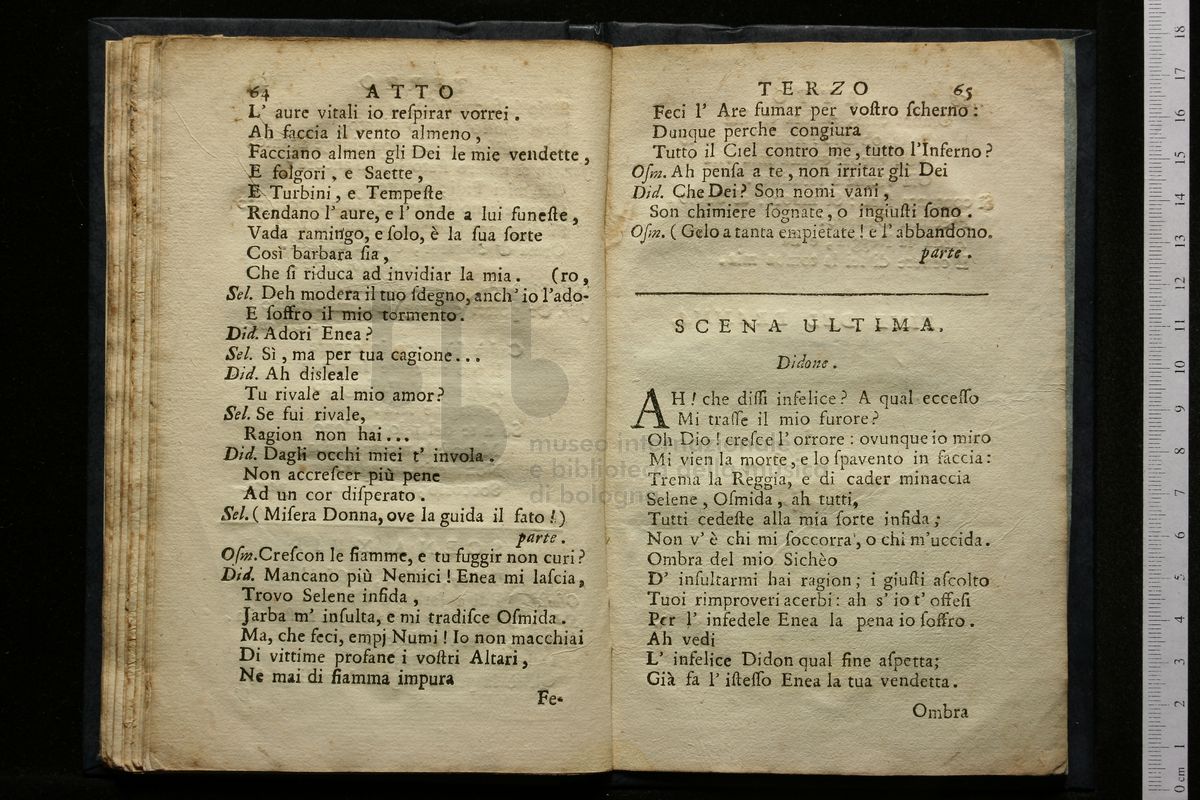 64 ATTO
L' aure vitali io reſpirar vorrei.
Ah faccia il vento almeno,
Facciano almen gli Dei le mie vendette,
E folgori, e Saette,
E Turbini, e Tempeſte
Rendano l'aure, e l'onde a lui funeſte,
Vada ramingo, e ſolo, è la ſua ſorte
Così barbara ſia,
Che ſi riduca ad invidiar la mia. (ro,
Sel. Deh modera il tuo ſdegno, anch'io l'ado-
E ſoffro il mio tormento.
Did. Adori Enea?
Sel. Sì, ma per tua cagione...
Did. Ah disleale
Tu rivale al mio amor?
Sel. Se fui rivale,
Ragion non hai...
Did. Dagli occhi miei t' invola.
Non accreſcer più pene
Ad un cor diſperato.
Sel. (Miſera Donna, ove la guida il fato!)
parte.
Oſm. Creſcon le fiamme, e tu fuggir non curi?
Did. Mancano più Nemici! Enea mi laſcia,
Trovo Selene infida,
Jarba m' inſulta, e mi tradiſce Oſmida.
Ma, che feci, empj Numi! Io non macchiai
Di vittime profane i voſtri Altari,
Ne mai di fiamma impura
Fe-
TERZO 65
Feci l' Are fumar per voſtro ſcherno:
Dunque perche congiura
Tutto il Ciel contro me, tutto l'Inferno?
Oſm. Ah penſa a te, non irritar gli Dei
Did. Che Dei? Son nomi vani,
Son chimiere ſognate, o ingiuſti ſono.
Oſm. (Gelo a tanta empietate! e l'abbandono.
parte.
SCENA ULTIMA.
Didone.
AH! che diſſi infelice? A qual ecceſſo
Mi traſſe il mio furore?
Oh Dio! creſce l' orrore: ovunque io miro
Mi vien la morte, e lo ſpavento in faccia:
Trema la Reggia, e di cader minaccia
Selene, Oſmida, ah tutti,
Tutti cedeſte alla mia ſorte infida;
Non v' è chi mi ſoccorra, o chi m'uccida.
Ombra del mio Sichèo
D' inſultarmi hai ragion; i giuſti aſcolto
Tuoi rimproveri acerbi: ah s' io t' offeſi
Per l' infedele Enea la pena io ſoffro.
Ah vedi
L' infelice Didon qual fine aſpetta;
Già fa l' iſteſſo Enea la tua vendetta.
Ombra
museo internazionale
e biblioteca della musica
di bologna
0 cm 1 2 3 4 5 6 7 8 9 10 11 12 13 14 15 16 17 18